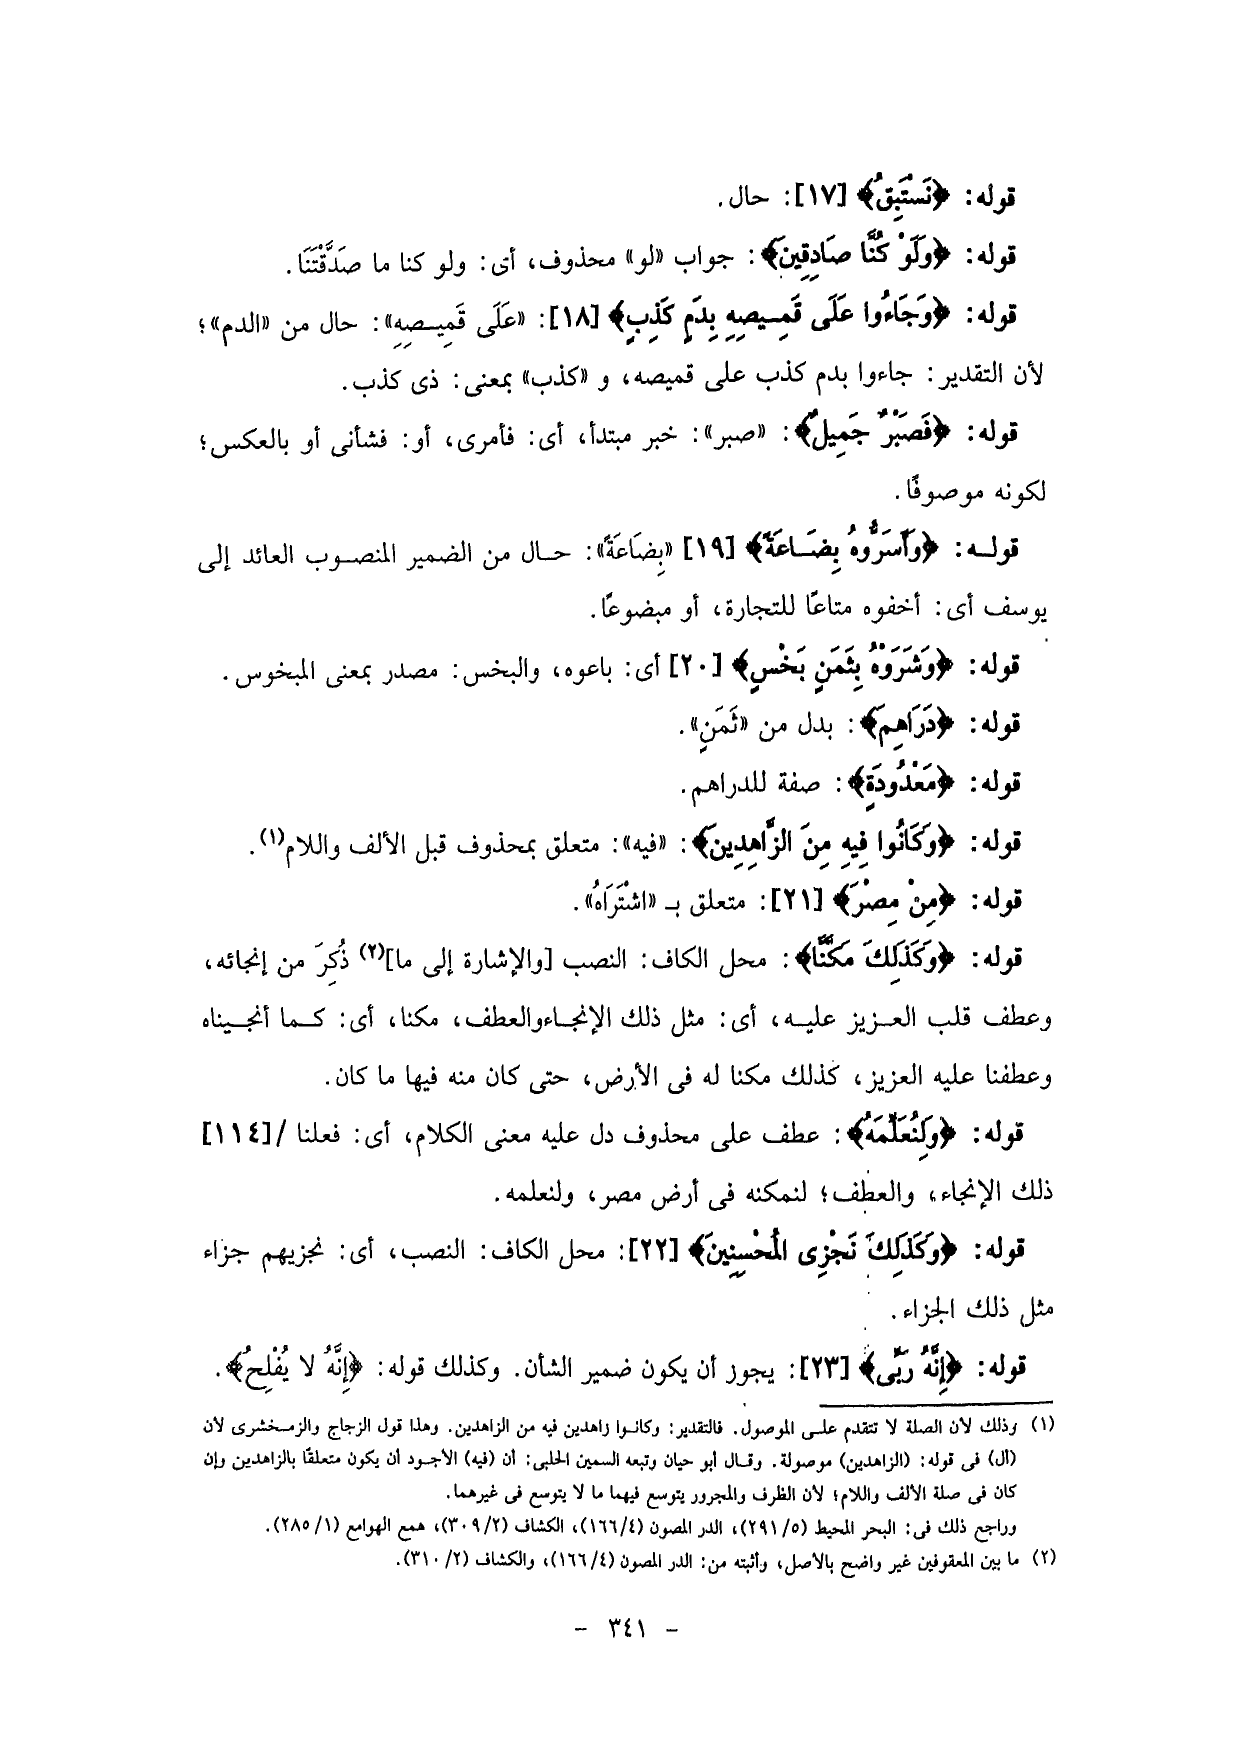 قوله: ﴿نَسْتَبِقُ﴾ [١٧]: حال.
قوله: ﴿وَلَوْ كُنَّا صَادِقِينَ﴾: جواب «لو» محذوف، أى: ولو كنا ما صَدَّقْتَنَا.
قوله: ﴿وَجَاءُوا عَلَى قَمِيصِهِ بِدَمٍ كَذِبٍ﴾ [١٨]: «عَلَى قَمِيصِهِ»: حال من «الدم»؛
لأن التقدير: جاءوا بدم كذب على قميصه، و «كذب» بمعنى: ذى كذب.
قوله: ﴿فَصَبْرٌ جَمِيلٌ﴾: «صبر»: خبر مبتدأ، أى: فأمرى، أو: فشأنى أو بالعكس؛
لكونه موصوفًا.
قوله: ﴿وَأَسَرُّوهُ بِضَاعَةً﴾ [١٩] «بِضَاعَةً»: حال من الضمير المنصوب العائد إلى
يوسف أى: أخفوه متاعًا للتجارة، أو مبضوعًا.
قوله: ﴿وَشَرَوْهُ بِثَمَنٍ بَخْسٍ﴾ [٢٠] أى: باعوه، والبخس: مصدر بمعنى المبخوس.
قوله: ﴿دَرَاهِمَ﴾: بدل من «ثَمَنٍ».
قوله: ﴿مَعْدُودَةٍ﴾: صفة للدراهم.
قوله: ﴿وَكَانُوا فِيهِ مِنَ الزَّاهِدِينَ﴾: «فيه»: متعلق بمحذوف قبل الألف واللام(١).
قوله: ﴿مِنْ مِصْرَ﴾ [٢١]: متعلق بـ «اشْتَرَاهُ».
قوله: ﴿وَكَذَلِكَ مَكَّنَّا﴾: محل الكاف: النصب [والإشارة إلى ما](٢) ذُكِرَ من إنجائه،
وعطف قلب العزيز عليه، أى: مثل ذلك الإنجاءوالعطف، مكنا، أى: كما أنجيناه
وعطفنا عليه العزيز، كذلك مكنا له فى الأرض، حتى كان منه فيها ما كان.
قوله: ﴿وَلِنُعَلِّمَهُ﴾: عطف على محذوف دل عليه معنى الكلام، أى: فعلنا /[١١٤]
ذلك الإنجاء، والعطف؛ لنمكنه فى أرض مصر، ولنعلمه.
قوله: ﴿وَكَذَلِكَ نَجْزِى الْمُحْسِنِينَ﴾ [٢٢]: محل الكاف: النصب، أى: نجزيهم جزاء
مثل ذلك الجزاء.
قوله: ﴿إِنَّهُ رَبِّى﴾ [٢٣]: يجوز أن يكون ضمير الشأن. وكذلك قوله: ﴿إِنَّهُ لا يُفْلِحُ﴾.
(١) وذلك لأن الصلة لا تتقدم على الموصول. فالتقدير: وكانوا زاهدين فيه من الزاهدين. وهذا قول الزجاج والزمخشرى لأن
(ال) فى قوله: (الزاهدين) موصولة. وقال أبو حيان وتبعه السمين الحلبى: أن (فيه) الأجود أن يكون متعلقًا بالزاهدين وإن
كان فى صلة الألف واللام؛ لأن الظرف والمجرور يتوسع فيهما ما لا يتوسع فى غيرهما.
وراجع ذلك فى: البحر المحيط (٢٩١/٥)، الدر المصون (١٦٦/٤)، الكشاف (٣٠٩/٢)، همع الهوامع (٢٨٥/١).
(٢) ما بين المعقوفين غير واضح بالأصل، وأثبته من: الدر المصون (١٦٦/٤)، والكشاف (٣١٠/٢).
- ٣٤١ -